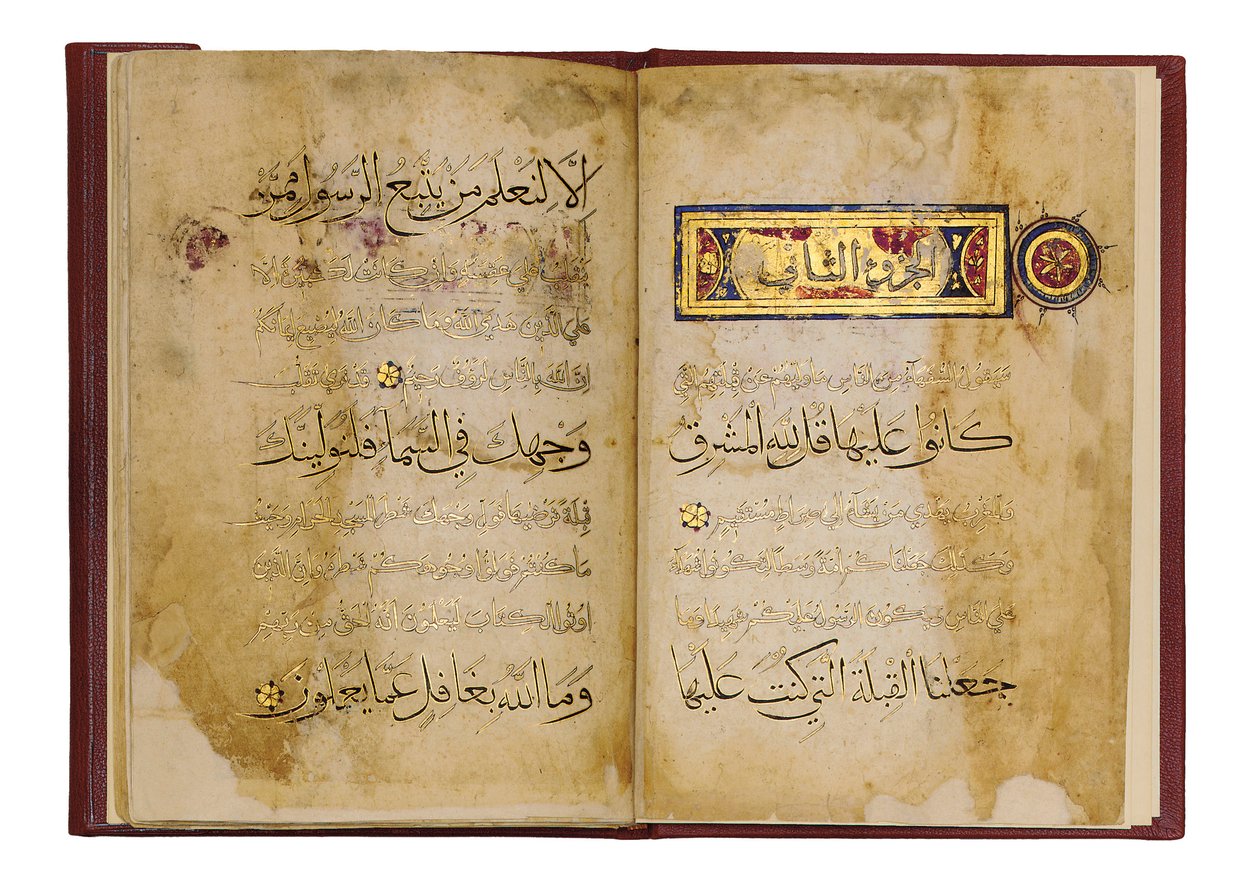 الجزوء الثاني
سيقول السفهاء من الناس ما وليهم عن قبلتهم التي
كَانُوا عَلَيْهَا قُل لِلّهِ الْمَشْرِقُ
والمغرب يهدي من يشاء الي صراط مستقيم
وكذلك جعلناكم امة وسطا لتكونوا شهداء
علي الناس ويكون الرسول عليكم شهيدا وما
جَعَلْنَا الْقِبْلَةَ الَّتِي كُنْتَ عَلَيْهَا
اِلَّا لِنَعْلَمَ مَنْ يَتَّبِعُ الرَّسُولَ مِمَّنْ
ينقلب علي عقبيه وان كانت لكبيرة الا
علي الذين هدي الله وما كان الله ليضيع ايمانكم
ان الله بالناس لرؤف رحيم قد نري تقلب
وَجْهِكَ فِي السَّمَآءِ فَلَنُوَلِّيَنَّكَ
قبلة ترضيها فول وجهك شطر المسجد الحرام وحيث
ما كنتم فولوا وجوهكم شطره وان الذين
اوتوا الكتاب ليعلمون انه الحق من ربهم
وَمَا اللهُ بِغَافِلٍ عَمَّا يَعْمَلُونَ